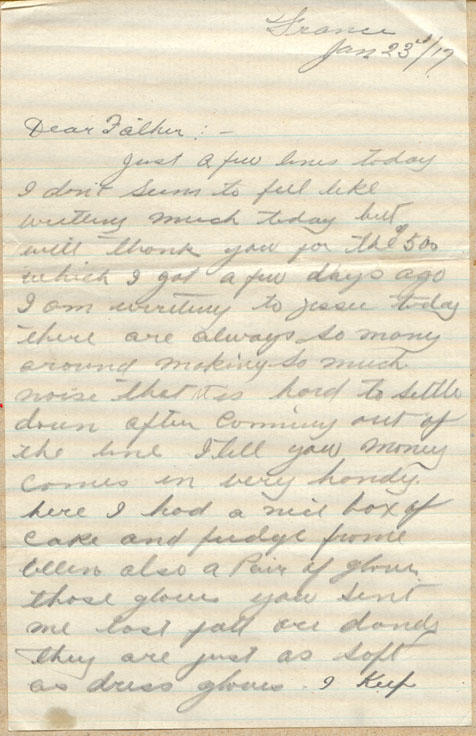 France
Jan 23rd/17
Dear Father : -
Just a few lines today
I don't seem to feel like
writing much today but
will thank you for the $5.00
which I got a few days ago
I am writing to Jessie today
there are always so many
around making so much
noise that it is hard to settle
down after coming out of
the line I tell you money
comes in very handy
here I had a nice box of
cake and fudge from
also a Pair of gloves
those gloves you sent
me last fall are dandy
they are just as soft
as dress gloves. I Keep